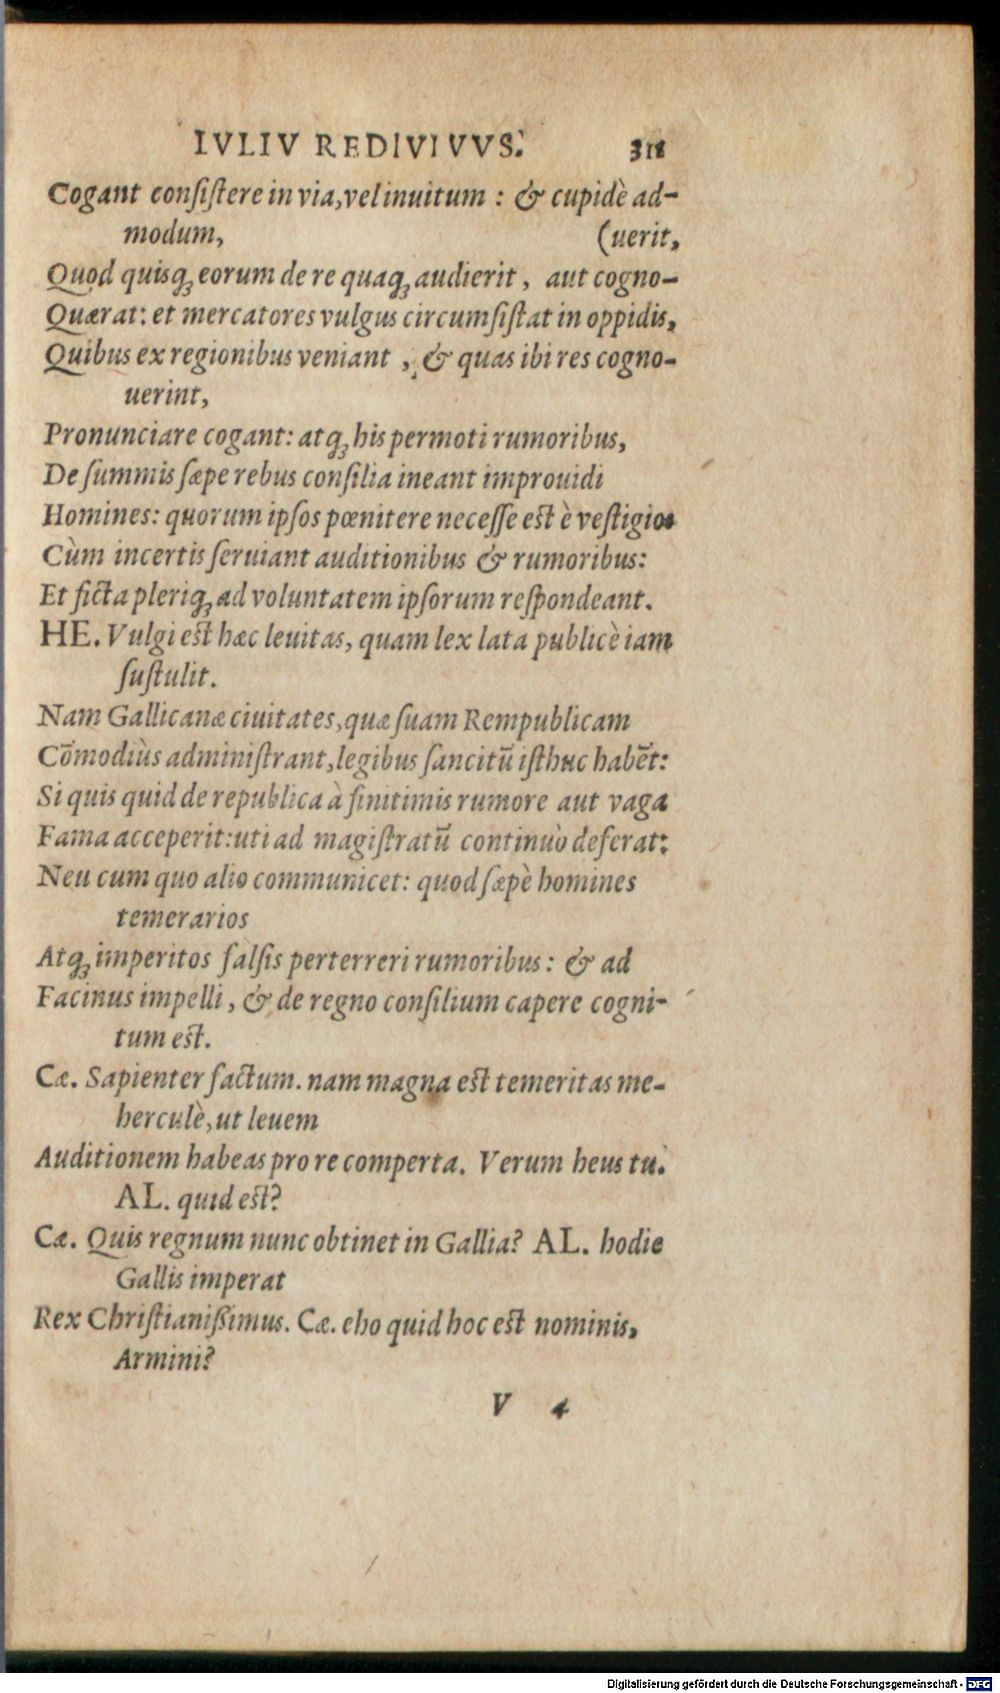 IVLIV REDIVIVVS. 311
Cogant conſiſtere in via, vel inuitum : & cupidè ad-
modum, (uerit,
Quod quisq́ꝫ eorum de re quaq́ꝫ audierit, aut cogno-
Quærat: et mercatores vulgus circumſiſtat in oppidis,
Quibus ex regionibus veniant, & quas ibi res cogno-
uerint,
Pronunciare cogant: atq́ꝫ his permoti rumoribus,
De ſummis ſæpe rebus conſilia ineant improuidi
Homines: quorum ipſos pœnitere neceſſe est è veſtigio:
Cùm incertis ſeruiant auditionibus & rumoribus:
Et ficta pleriq́ꝫ ad voluntatem ipſorum reſpondeant.
HE. Vulgi est hæc leuitas, quam lex lata publicè iam
ſuſtulit.
Nam Gallicanæ ciuitates, quæ ſuam Rempublicam
Cōmodiùs adminiſtrant, legibus ſancitū iſthuc habēt:
Si quis quid de republica à finitimis rumore aut vaga
Fama acceperit: uti ad magiſtratū continuò deferat:
Neu cum quo alio communicet: quod ſæpè homines
temerarios
Atq́ꝫ imperitos falſis perterreri rumoribus: & ad
Facinus impelli, & de regno conſilium capere cogni-
tum est.
Cæ. Sapienter factum. nam magna est temeritas me-
herculè, ut leuem
Auditionem habeas pro re comperta. Verum heus tu.
AL. quid est?
Cæ. Quis regnum nunc obtinet in Gallia? AL. hodie
Gallis imperat
Rex Chriſtianißimus. Cæ. eho quid hoc est nominis,
Armini?
V 4
Digitalisierung gefördert durch die Deutsche Forschungsgemeinschaft - DFG